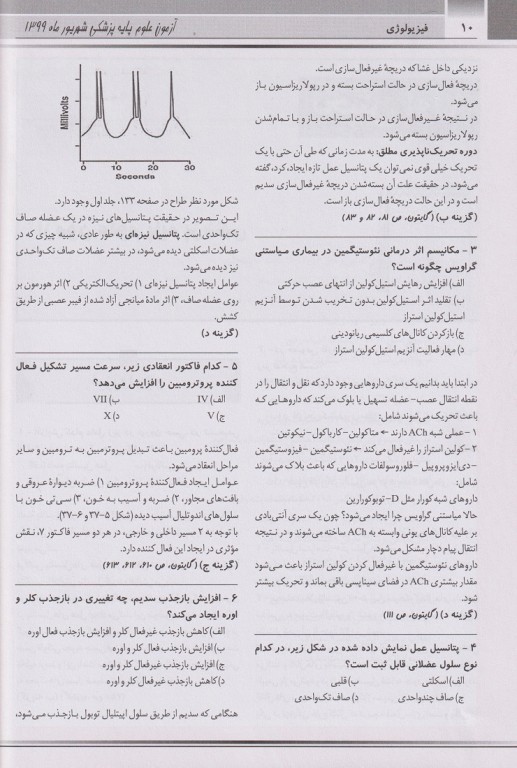 ۱۰ فیزیولوژی
آزمون علوم پایه پزشکی شهریور ماه ۱۳۹۹
نزدیکی داخل غشا که دریچهٔ غیرفعال‌سازی است.
دریچهٔ فعال‌سازی در حالت استراحت بسته و در رپولاریزاسیون باز
می‌شود.
در نتیجهٔ غیرفعال‌سازی در حالت استراحت باز و با تمام‌شدن
رپولاریزاسیون بسته می‌شود.
دوره تحریک‌ناپذیری مطلق: به مدت زمانی که طی آن حتی با یک
تحریک خیلی قوی نمی‌توان یک پتانسیل عمل تازه ایجاد، کرد، گفته
می‌شود. در حقیقت علت آن بسته‌شدن دریچهٔ غیرفعال‌سازی سدیم
است و در این حالت دریچهٔ فعال‌سازی باز است.
(گزینه ب) (گایتون، ص ۸۱، ۸۲ و ۸۳)
۳ - مکانیسم اثر درمانی نئوستیگمین در بیماری میاستنی
گراویس چگونه است؟
الف) افزایش رهایش استیل‌کولین از انتهای عصب حرکتی
ب) تقلید اثر استیل‌کولین بدون تخریب شدن توسط آنزیم
استیل‌کولین استراز
ج) بازکردن کانال‌های کلسیمی ریانودینی
د) مهار فعالیت آنزیم استیل‌کولین استراز
در ابتدا باید بدانیم یک سری داروهایی وجود دارد که نقل و انتقال را در
نقطه انتقال عصب - عضله تسهیل یا بلوک می‌کند که داروهایی که
باعث تحریک می‌شوند شامل:
۱ - عملی شبه ACh دارند ← متاکولین - کارباکول - نیکوتین
۲ - کولین استراز را غیرفعال می‌کند ← نئوستیگمین - فیزوستیگمین
- دی‌ایزوپروپیل - فلوروسولفات داروهایی که باعث بلاک می‌شوند
شامل:
داروهای شبه کورار مثل D- توبوکورارین
حالا میاستنی گراویس چرا ایجاد می‌شود؟ چون یک سری آنتی‌بادی
بر علیه کانال‌های یونی وابسته به ACh ساخته می‌شوند و در نتیجه
انتقال پیام دچار مشکل می‌شود.
داروهای نئوستیگمین با غیرفعال کردن کولین استراز باعث می‌شود
مقدار بیشتری ACh در فضای سیناپسی باقی بماند و تحریک بیشتر
شود.
(گزینه د) (گایتون، ص ۱۱۱)
۴ - پتانسیل عمل نمایش داده شده در شکل زیر، در کدام
نوع سلول عضلانی قابل ثبت است؟
الف) اسکلتی ب) قلبی
ج) صاف چندواحدی د) صاف تک‌واحدی
Millivolts
0 10 20 30
Seconds
شکل مورد نظر طراح در صفحه ۱۳۳، جلد اول وجود دارد.
این تصویر در حقیقت پتانسیل‌های نیزه در یک عضله صاف
تک‌واحدی است. پتانسیل نیزه‌ای به طور عادی، شبیه چیزی که در
عضلات اسکلتی دیده می‌شود، در بیشتر عضلات صاف تک‌واحدی
نیز دیده می‌شود.
عوامل ایجاد پتانسیل نیزه‌ای ۱) تحریک الکتریکی ۲) اثر هورمون بر
روی عضله صاف، ۳) اثر مادهٔ میانجی آزاد شده از فیبر عصبی از طریق
کشش.
(گزینه د)
۵ - کدام فاکتور انعقادی زیر، سرعت مسیر تشکیل فعال
کننده پروترومبین را افزایش می‌دهد؟
الف) IV ب) VII
ج) V د) X
فعال‌کنندهٔ پرومبین باعث تبدیل پروترمبین به ترومبین و سایر
مراحل انعقاد می‌شود.
عوامل ایجاد فعال‌کنندهٔ پروترومبین ۱) ضربه دیوارهٔ عروقی و
بافت‌های مجاور، ۲) ضربه و آسیب به خون، ۳) سی‌تی خون با
سلول‌های اندوتلیال آسیب دیده (شکل ۵-۳۷ و ۶-۳۷).
با توجه به ۲ مسیر داخلی و خارجی، در هر دو مسیر فاکتور ۷، نقش
مؤثری در ایجاد این فعال‌کننده دارد.
(گزینه ج) (گایتون، ص ۶۱۰، ۶۱۲، ۶۱۳)
۶ - افزایش بازجذب سدیم، چه تغییری در بازجذب کلر و
اوره ایجاد می‌کند؟
الف) کاهش بازجذب غیرفعال کلر و افزایش بازجذب فعال اوره
ب) افزایش بازجذب فعال کلر و اوره
ج) افزایش بازجذب غیرفعال کلر و اوره
د) کاهش بازجذب غیرفعال کلر و اوره
هنگامی که سدیم از طریق سلول اپیتلیال توبول بازجذب می‌شود،